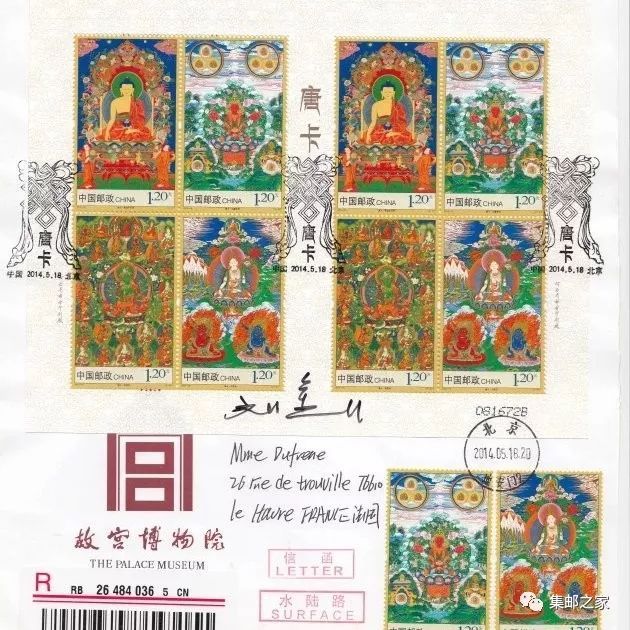 唐卡
唐卡
中国 2014.5.18 北京
唐卡
中国 2014.5.18 北京
唐卡
中国 2014.5.18 北京
中国邮政 CHINA 1.20元
中国邮政 CHINA 1.20元
中国邮政 CHINA 1.20元
中国邮政 CHINA 1.20元
中国邮政 CHINA 1.20元
中国邮政 CHINA 1.20元
中国邮政 CHINA 1.20元
中国邮政 CHINA 1.20元
081672B
北京
2014.05.18.20
Mme Dufrene
26 rue de trouville 76610
le Havre FRANCE 法国
故宫博物院
THE PALACE MUSEUM
信函
LETTER
水陆路
SURFACE
R
RB 26 484 036 5 CN
集邮之家